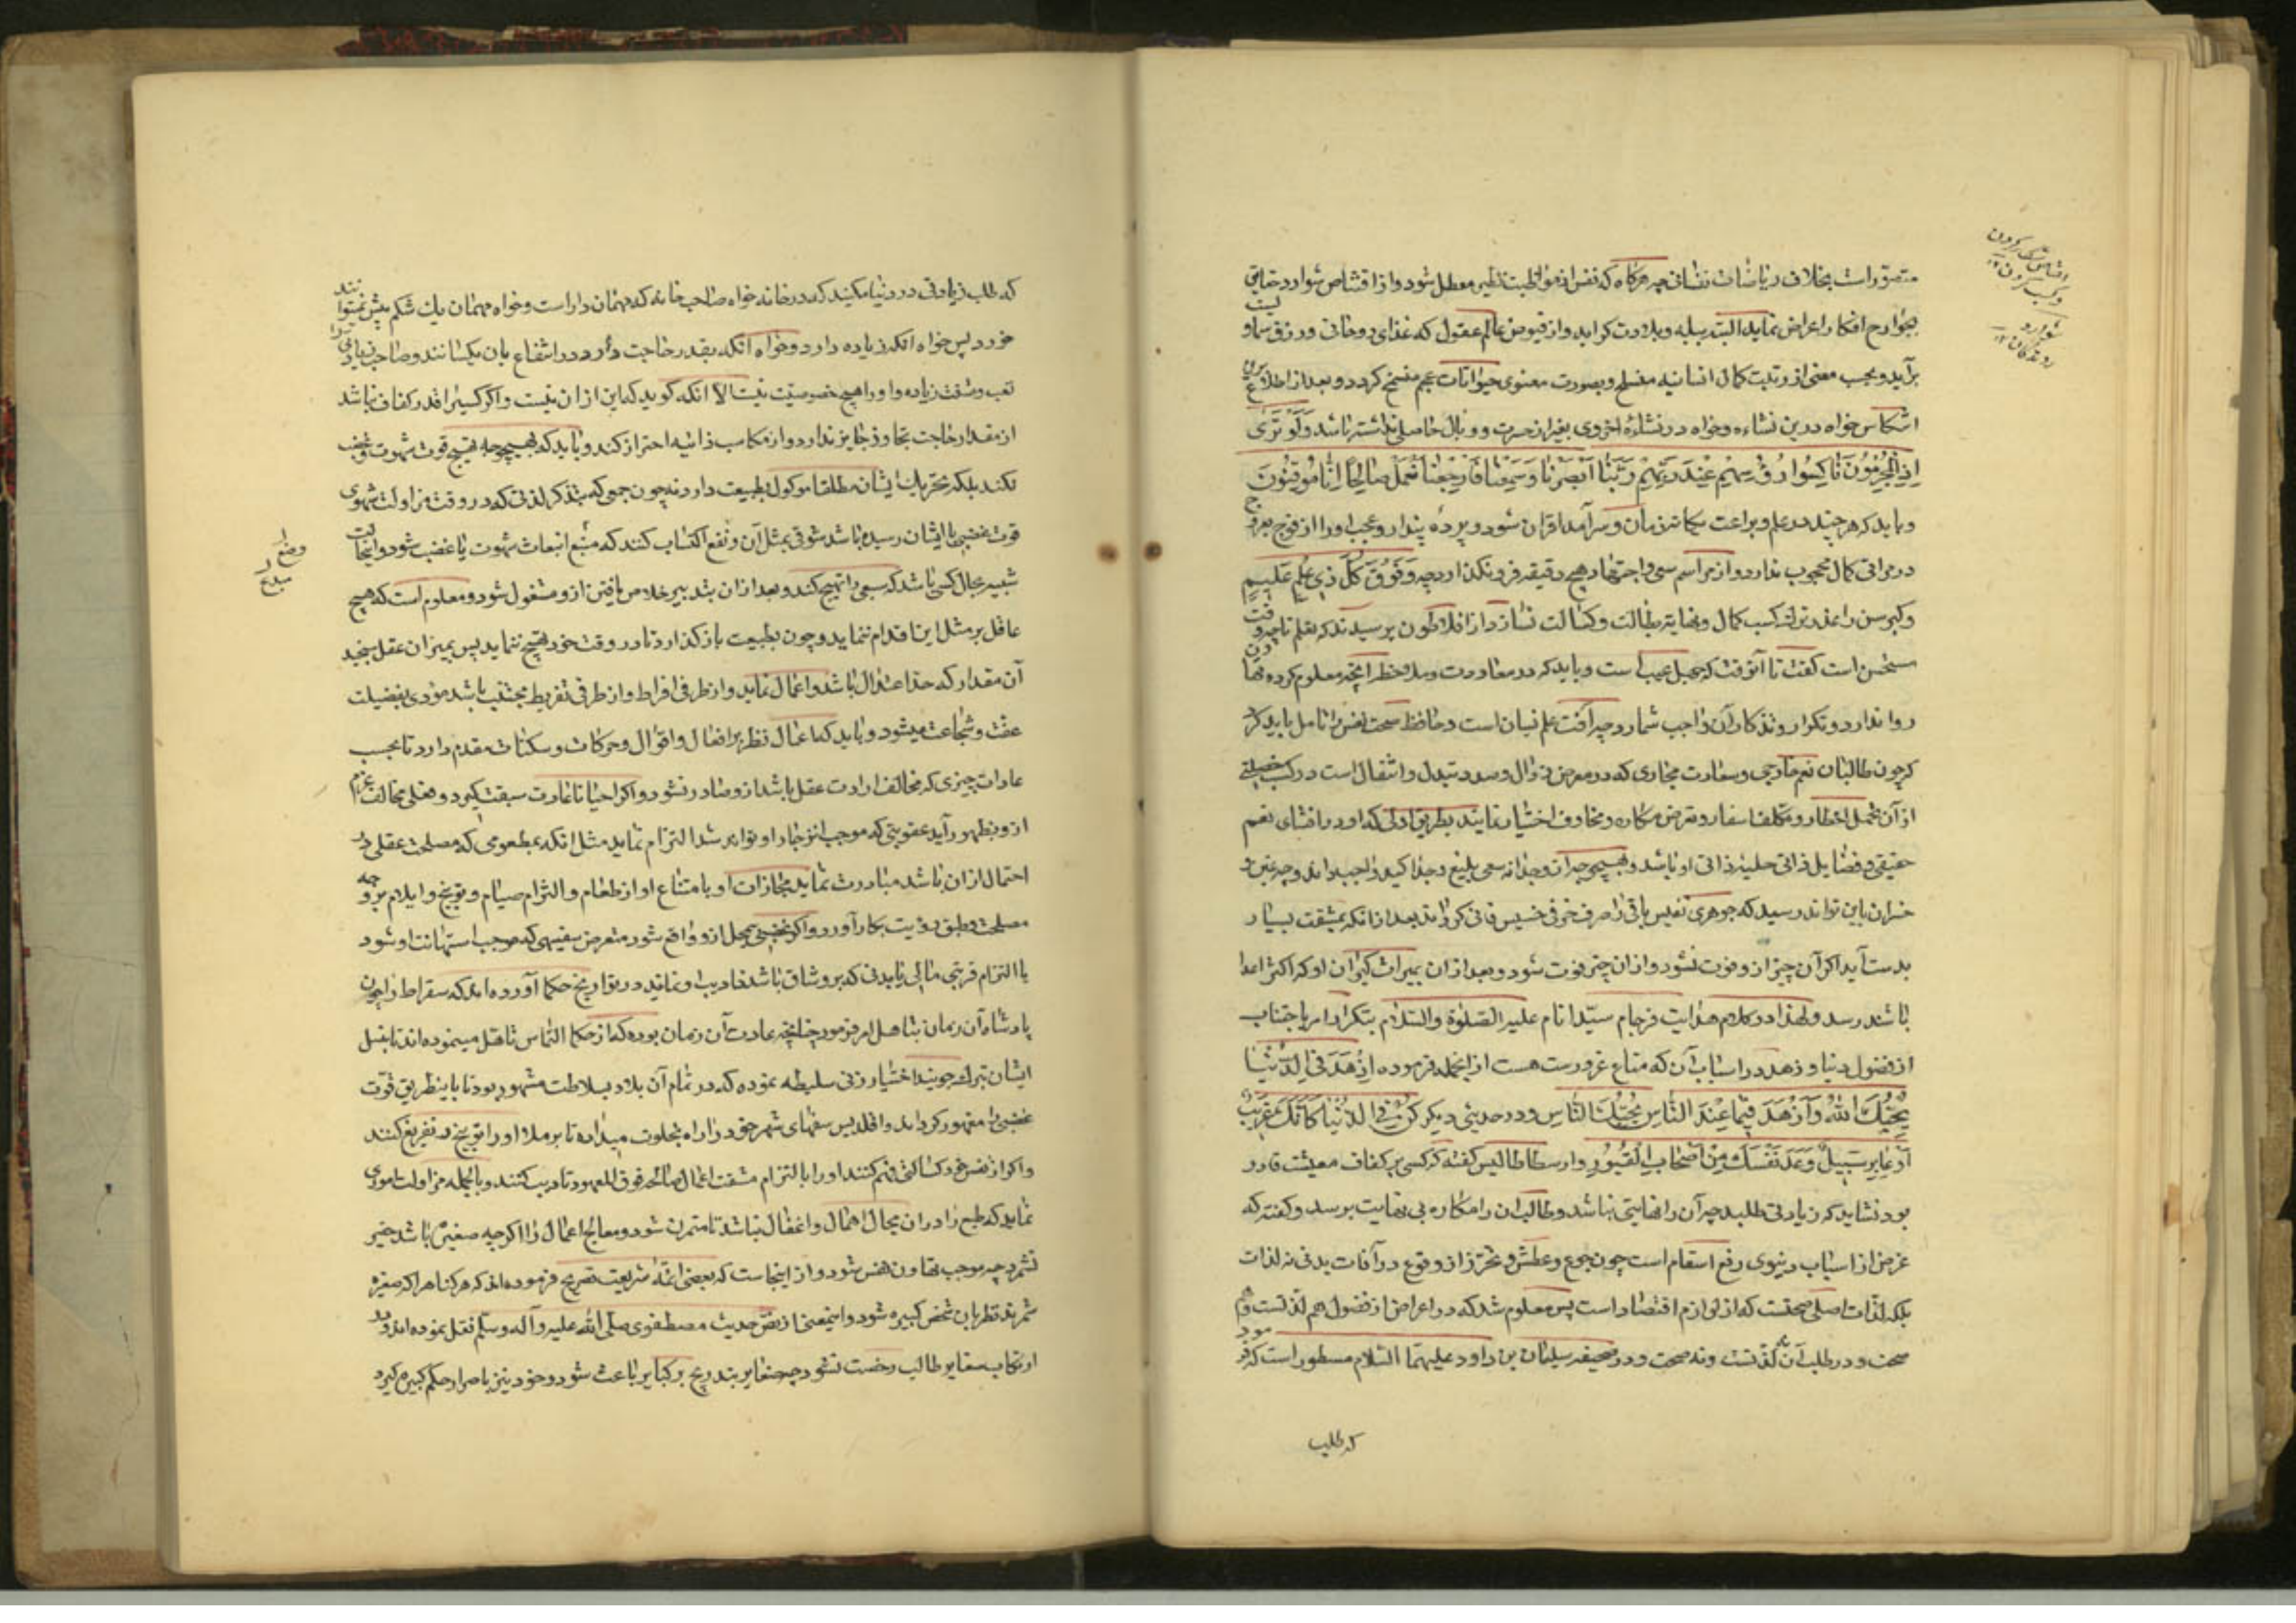 متصوّر است بخلاف ریاضات نفسانی چه هرکاه که نفس از مواظبت نظیر معطل شود و از اقتناص شوارد حقایق
بجوارح افکار اعراض نماید البته ببله و بلادت کراید و از فیوض عالم عقول که غذای روحانی و رزق سماو
برآید و بحسب معنی از رتبت کمال انسانیه منسلخ و بصورت معنوی حیوانات عجم منفسخ کردد و بعد از اطلاع برین
انتکاس خواه درین نشاءه و خواه در نشاءهٔ اخروی بغیر از حسرت و وبال حاصلی نداشته باشد وَلَوْ تَرَىٰ
اِذِ الْمُجْرِمُونَ نَاكِسُوا رُؤُسِهِمْ عِنْدَ رَبِّهِمْ رَبَّنَا اَبْصَرْنَا وَسَمِعْنَا فَارْجِعْنَا نَعْمَلْ صَالِحًا اِنَّا مُوقِنُونَ
و باید که هرچند در علم و براعت یکانه زمان و سرآمد اقران شود و پرده پندار و عجب او را از عروج
در مراقی کمال محجوب ندارد و از مراسم سعی و اجتهاد هیچ دقیقه فرو نکذارد چه وَفَوْقَ كُلِّ ذِي عِلْمٍ عَلِيمٍ
و کبر سن را عذر ترک کسب کمال و نهایة بطالت و کسالت نسازد از افلاطون پرسیدند که تعلم تا چه وقت
مستحسن است کفت تا آنوقت که جهل عیب است و باید که در معاودت و ملاحظه انچه معلوم کرده تهاون
روا ندارد و تکرار و تذکار آن واجب شمارد چه آفت علم نسیان است و حافظ صحت نفس را تامل باید کرد
که چون طالبان نعم خارجی و سعادت مجازی که در معرض زوال و صدد تبدل و انتقال است در کسب فضیلتی
از آن تحمل اخطار و تکلف اسفار و تعرض مکاره و مخاوف اختیار نمایند بطریق اولی که او در اقتنای نعم
حقیقی و فضایل ذاتی حلیهٔ ذاتی او باشد و بهیچوجه ازو جدا نه سعی بلیغ و جد اکید واجب داند و چه غبن و
خسران باین تواند رسید که جوهری نفیس باقی را صرف خزفی خسیس فانی کرداند بعد از انکه بمشقت بسیار
بدست آید اکر آن چیز ازو فوت نشود او از ان چیز فوت شود و بعد از ان بمیراث کیران او که اکثر اعدا
باشند رسد و لهذا در کلام هدایت فرجام سیّد انام علیه الصّلوة والسّلام بتکرار امر باجتناب
از فضول دنیا و زهد در اسباب آن که متاع غرورست هست از انجمله فرموده اِزْهَدْ فِي الدُّنْيَا
يُحِبُّكَ اللّٰهُ وَازْهَدْ فِيمَا عِنْدَ النَّاسِ يُحِبُّكَ النَّاس و در حدیثی دیکر كُنْ فِي الدُّنْيَا كَاَنَّكَ غَرِيبٌ
اَوْ عَابِرُ سَبِيلٍ وَعُدَّ نَفْسَكَ مِنْ اَصْحَابِ الْقُبُورِ و ارسطاطالیس کفته که کسی بر کفاف معیشت قادر
بود نشاید که زیادتی طلبد چه آن را نهایتی نباشد و طالب ان را مکاره بی نهایت برسد و کفته که
غرض از اسباب دنیوی رفع اسقام است چون جوع و عطش و تحرز از وقوع در آفات بدنی نه لذات
بلکه لذات اصلی صحتست که از لوازم اقتصاد است پس معلوم شد که در اعراض از فضول هم لذتست و هم
صحت و در طلب آن نه لذتست و نه صحت و در صحیفه سلیمان بن داود علیهما السّلام مسطور است که فرمود
که طلب
شوارد
روندکان
که طلب زیادتی در دنیا مکنید که در خانه خواه صاحب خانه که مهمان دار است و خواه مهمان یک شکم بیش نمیتوانند
خورد پس خواه انکه زیاده دارد و خواه انکه بقدر حاجت دارد در انتفاع بان یکسانند و صاحب زیادتی را
تعب و مشقت زیاده و او را هیچ خصوصیّت نیست الا انکه کوید که این از ان نیست و اکر کسی را قدر کفاف نباشد
از مقدار حاجت تجاوز جایز ندارد و از مکاسب دنیه احتراز کند و باید که بهیچوجه تهییج قوت شهوت و غضب
نکند بلکه تحریک ایشان مطلقا موکول بطبیعت دارد نه چون جمعی که بتذکر لذتی که در وقت مزاولت شهوی
قوت غضبی با ایشان رسیده باشد شوقی بمثل آن وضع اکتساب کنند که منبع انبعاث شهوت یا غضب شود و اینحالت
شبیه بحال کسی باشد که سبعی را تهییج کند و بعد از ان بتدبیر خلاص یافتن ازو مشغول شود و معلوم است که هیچ
عاقل بر مثل این اقدام ننماید و چون بطبیعت بازکذارد تا در وقت خود تهییج نماید پس بمیزان عقل سنجید
آن مقدار که حد اعتدال باشد واعمال نماید و از طرفی افراط و از طرفی تفریط مجتنب باشد مؤدی بفضیلت
عفت و شجاعت میشود و باید که اعمال نظر بر افعال و اقوال و حرکات و سکنات مقدم دارد تا بحسب
عادات چیزی که مخالف ارادت عقل باشد ازو صادر نشود و اکر احیانا عادت سبقت کیرد و فعلی مخالف عزم
ازو بظهور آید عقوبتی که موجب انزجار او تواند شد التزام نماید مثل انکه بمطعومی که مصلحت عقلی در
احتمال از ان باشد مبادرت نماید مجازات او با متناع او از طعام و التزام صیام و توبیخ و ایلام بر وجه
مصلحت و طبق رؤیت بکار آورد و اکر غضبی بیمحل ازو واقع شود متعرض سفیهی که موجب استهانت او شود
یا التزام قربتی مالی یا بدنی که برو شاق باشد تادیب او نماید در تواریخ حکما آورده اند که سقراط را چون
پادشاه آن زمان بتاهل امر فرمود چنانچه عادت آن زمان بوده که از حکما التماس تاهل مینموده اند تا بنسل
ایشان تبرک جویند اختیار زنی سلیطه نموده که در تمام آن بلاد بسلاطت مشهور بود تا باینطریق قوّت
غضبی را مقهور کرداند و اقلیدس سفهای شهر خود را راه بخلوت میداده تا بر ملا او را توبیخ و تقریع کنند
واکر از نفس خود کسالتی فهم کنند او را بالتزام مشقت اعمال صالحه فوق المعهود تادیب کنند و بالجمله مزاولت اموری
نماید که طبع را در ان مجال اهمال و اغفال نباشد تا متمرن شود و معالج اعمال را اکر چه صغیر باشد حقیر
نشمرد چه موجب تهاون نفس شود و از اینجاست که بعضی ائمّهٔ شریعت تصریح فرموده اند که هر کناه را که صغیره
شمرند نظر بان شخص کبیره شود و اینمعنی از نصّ حدیث مصطفوی صلّی الله علیه وآله وسلّم نقل نموده اند و در
ارتکاب صغایر طالب رخصت نشود چه صغایر بتدریج بر کبایر باعث شود و خود نیز باصرار حکم کبیره کیرد